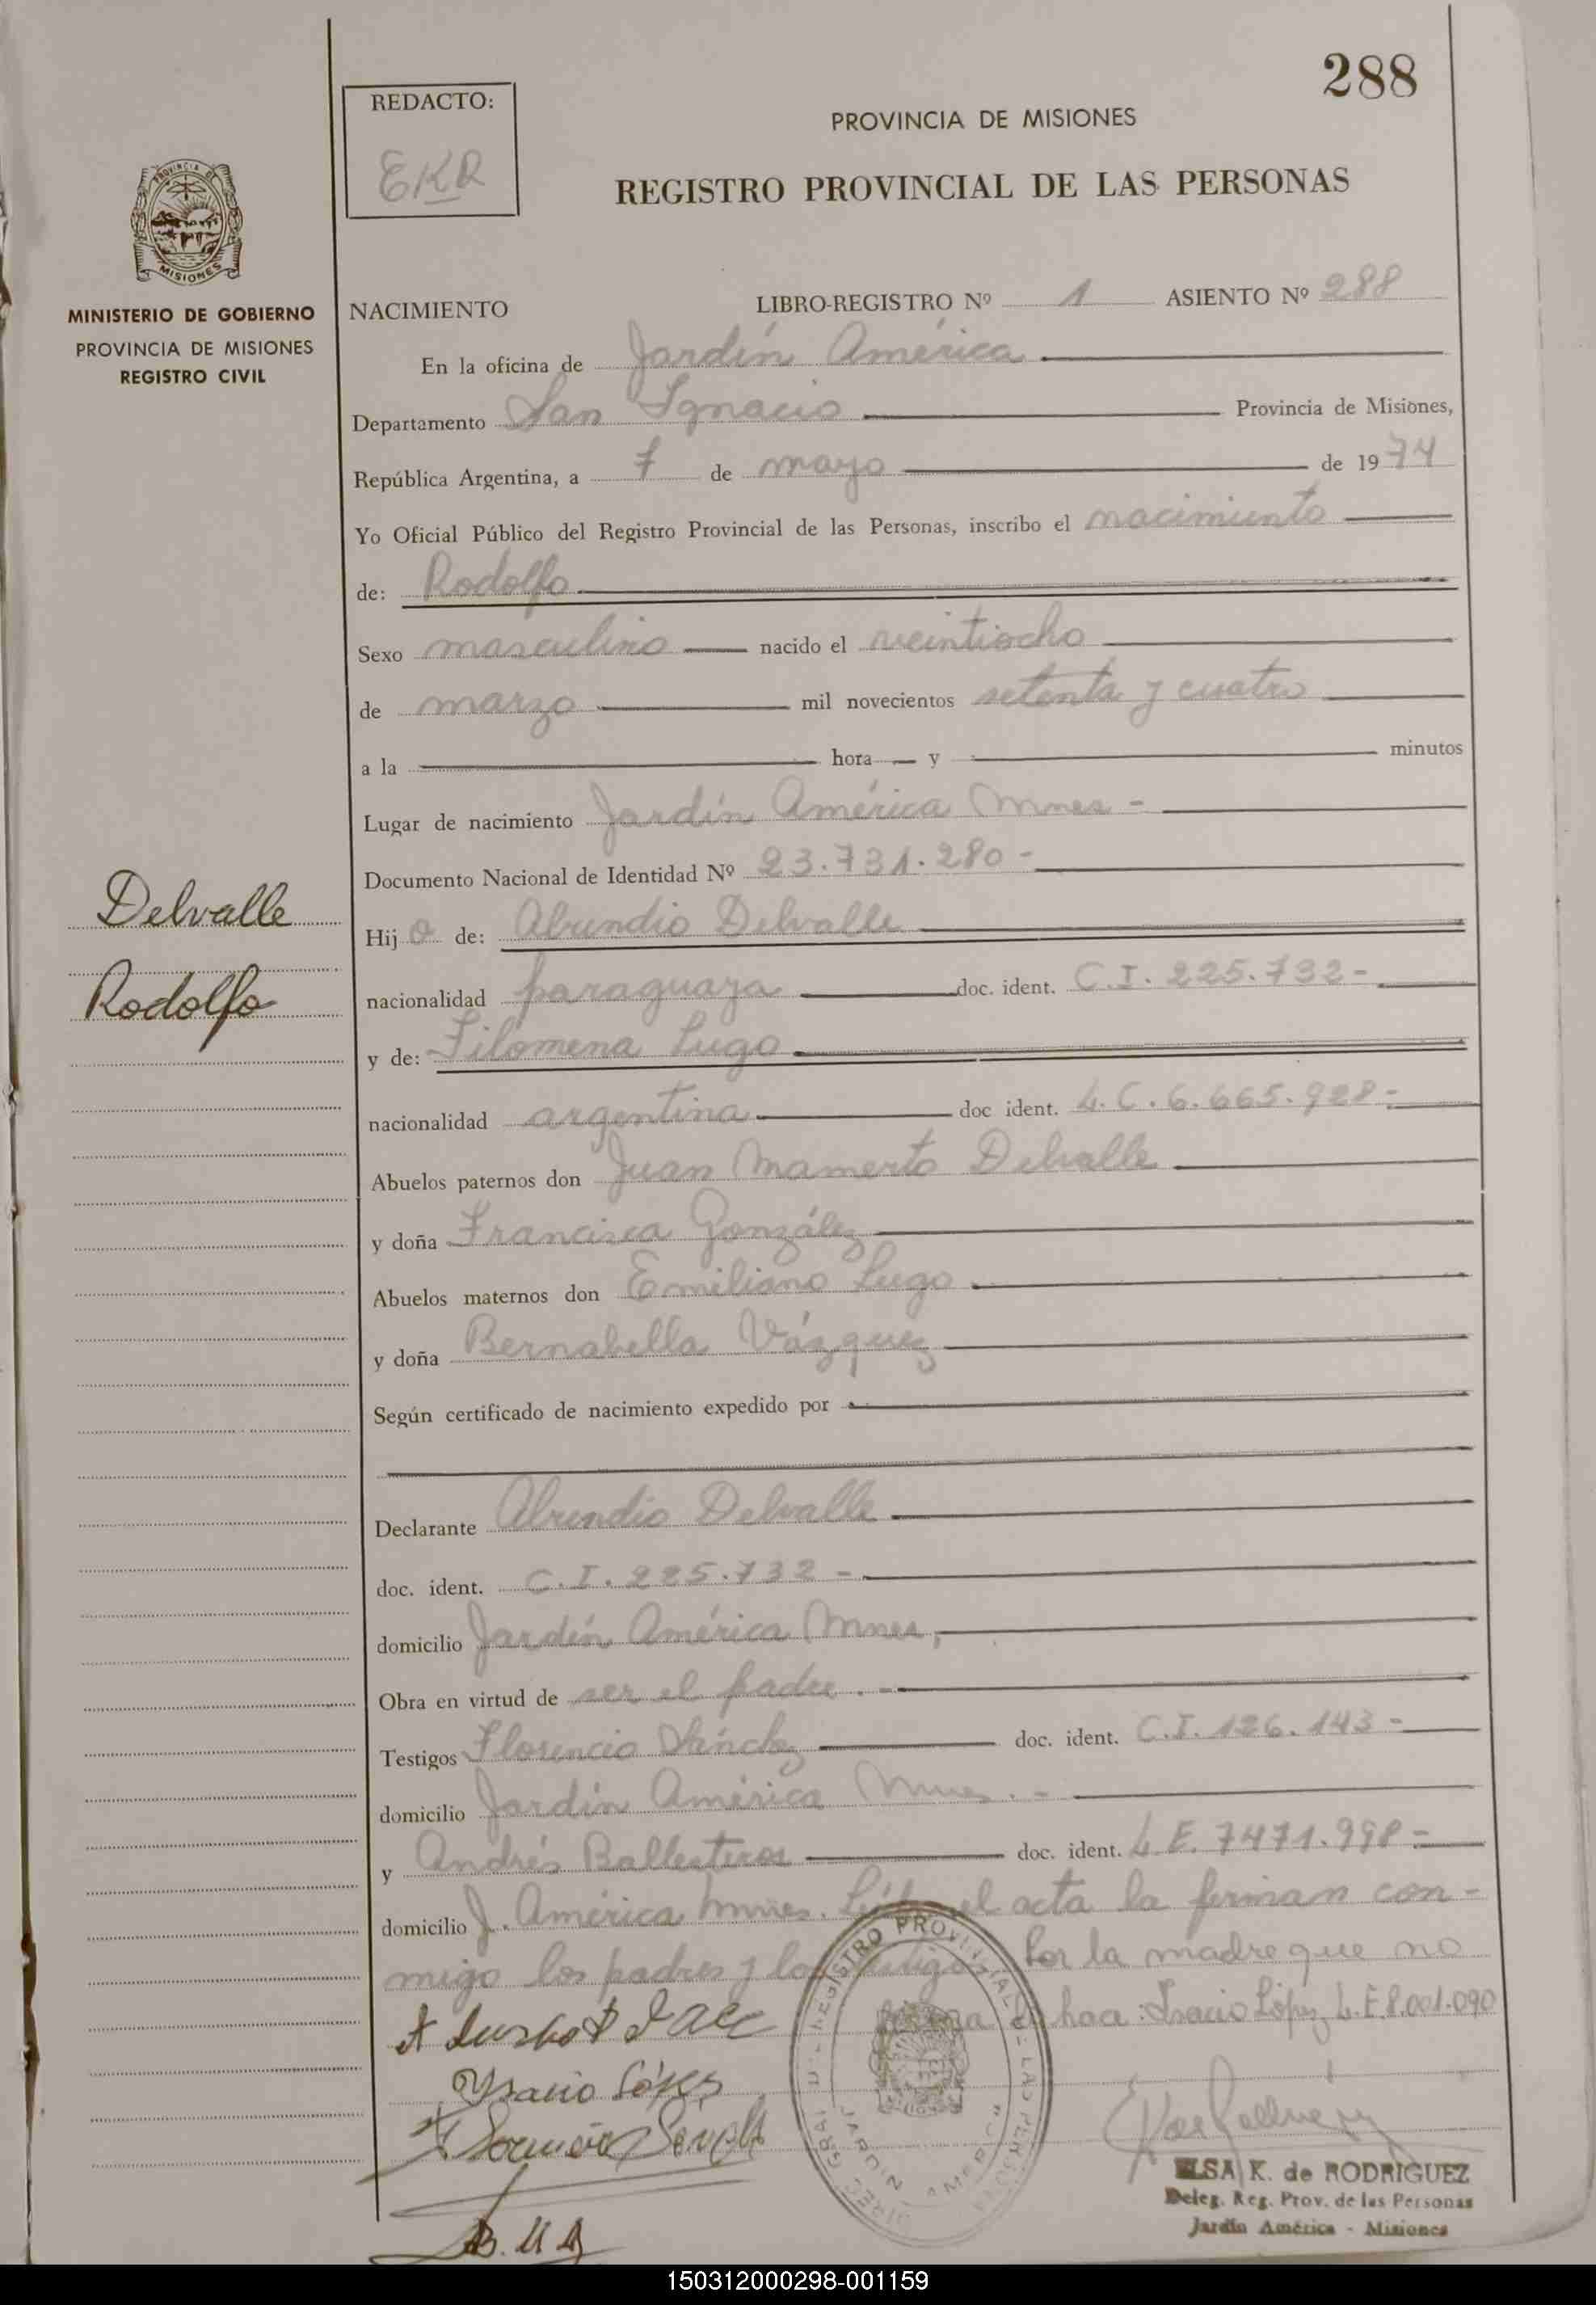 288
REDACTO:
EKR
PROVINCIA DE MISIONES
REGISTRO PROVINCIAL DE LAS PERSONAS
PROVINCIA DE
MISIONES
MINISTERIO DE GOBIERNO
PROVINCIA DE MISIONES
REGISTRO CIVIL
NACIMIENTO LIBRO-REGISTRO Nº 1 ASIENTO Nº 288
En la oficina de Jardín América
Departamento San Ignacio Provincia de Misiones,
República Argentina, a 7 de mayo de 1974
Yo Oficial Público del Registro Provincial de las Personas, inscribo el nacimiento
de: Rodolfo
Sexo masculino nacido el veintiocho
de marzo mil novecientos setenta y cuatro
a la hora y minutos
Lugar de nacimiento Jardín América Mnes -
Documento Nacional de Identidad Nº 23.731.280 -
Delvalle
Rodolfo
Hijo de: Abundio Delvalle
nacionalidad paraguaya doc. ident. C.I. 225.732 -
y de: Filomena Lugo
nacionalidad argentina doc ident. L.C. 6.665.928 -
Abuelos paternos don Juan Mamerto Delvalle
y doña Francisca González
Abuelos maternos don Emiliano Lugo
y doña Bernabella Vázquez
Según certificado de nacimiento expedido por
Declarante Abundio Delvalle
doc. ident. C.I. 225.732 -
domicilio Jardín América Mnes,
Obra en virtud de ser el padre. -
Testigos Florencio doc. ident. C.I. 126.143 -
domicilio Jardín América Mnes. -
y Andrés Ballesteros doc. ident. L.E. 7471.998 -
domicilio J. América Mnes. Leída el acta la firman con-
migo los padres y los testigos Por la madre que no
firma lo hace: Isacio López L.E. 8.001.090
Ysacio López
B.UA
ELSA K. de RODRIGUEZ
Deleg. Reg. Prov. de las Personas
Jardín América - Misiones
150312000298-001159